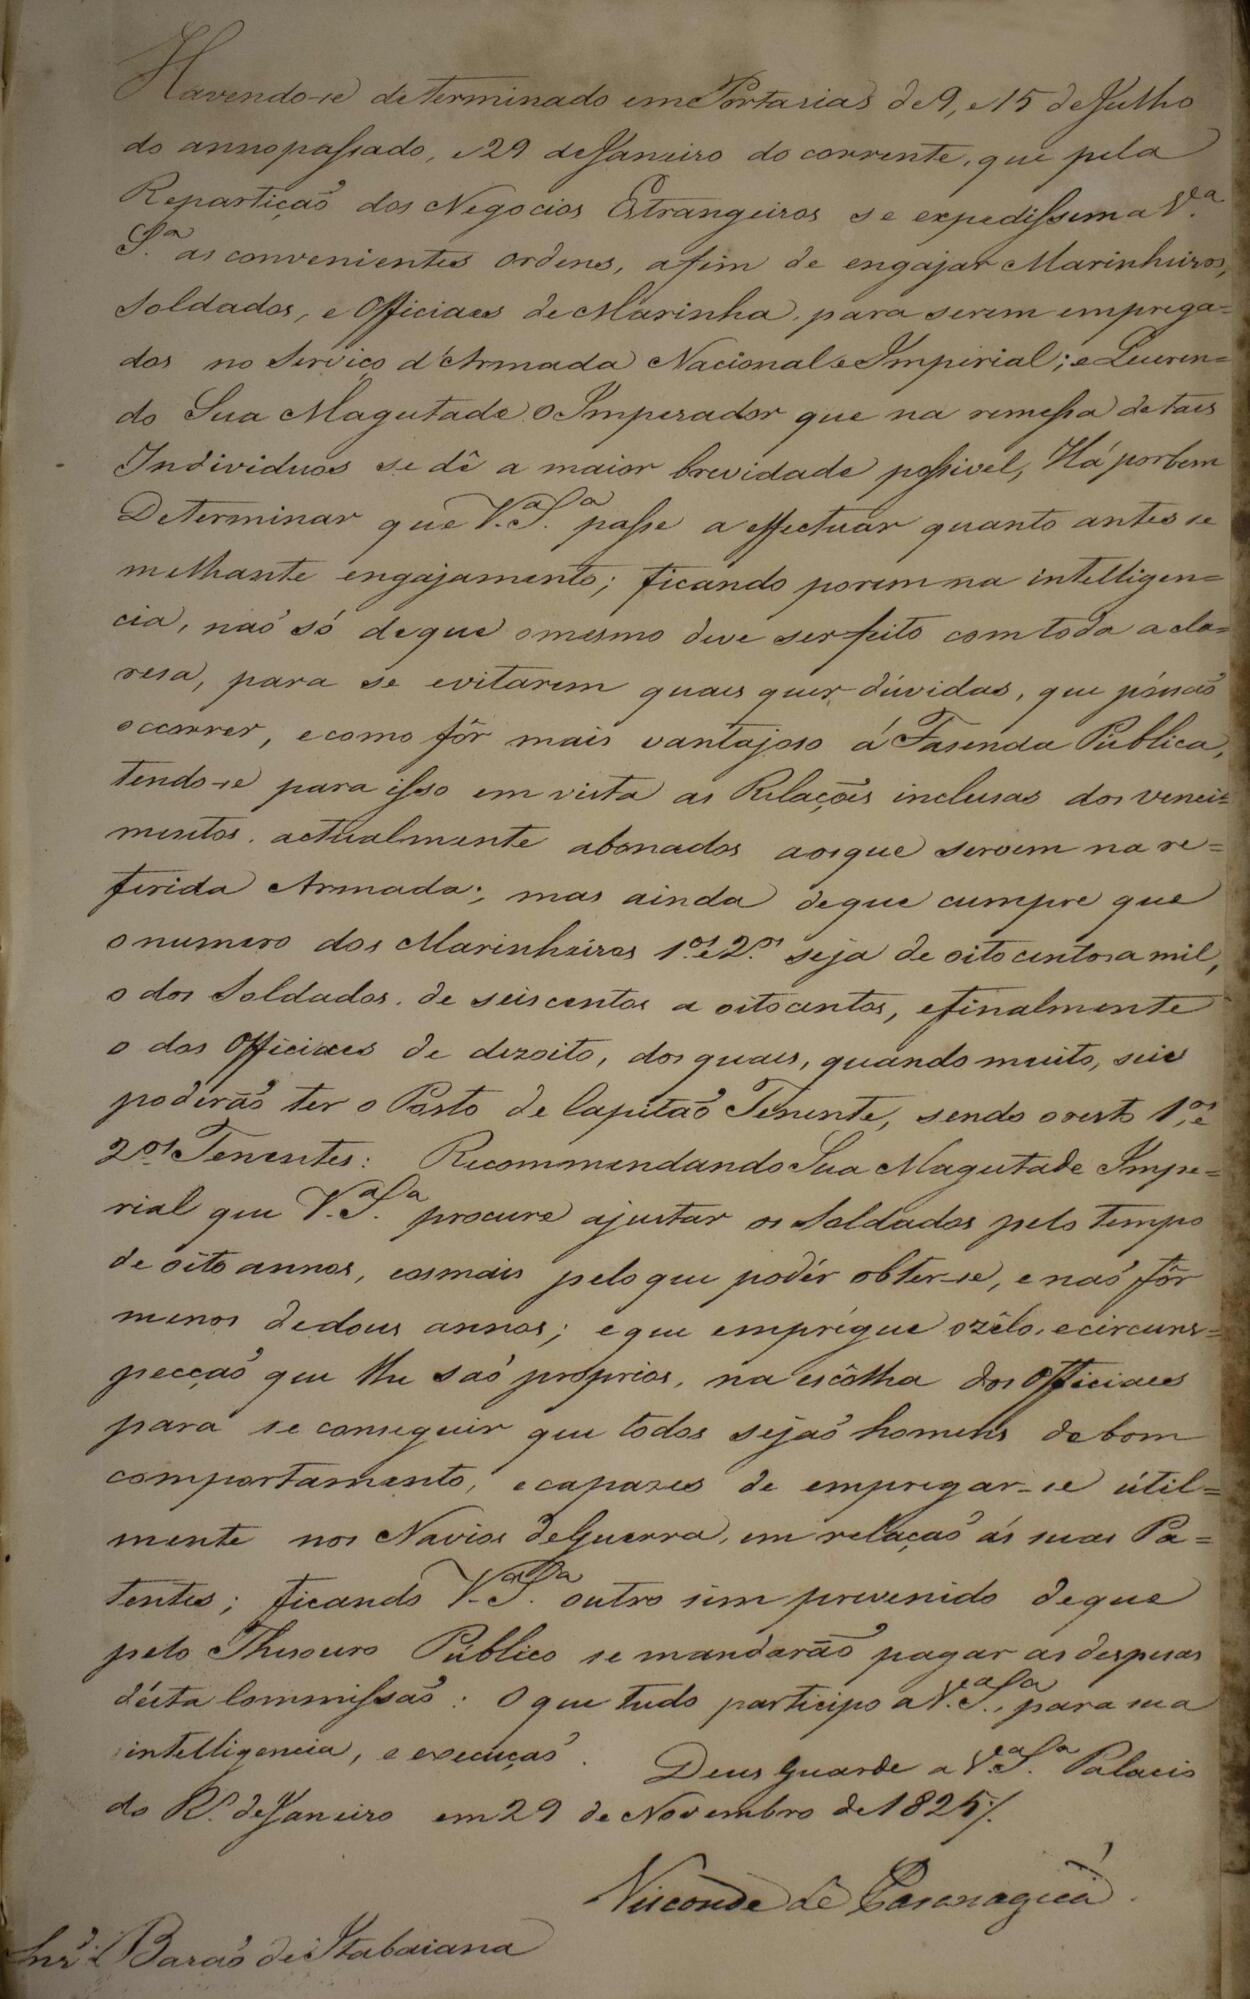 Havendo-se determinado em Portarias de 9, e 15 de Julho
do anno passado, e 29 de Janeiro do corrente, que pela
Repartiçaõ dos Negocios Estrangeiros se expedissem a V.ª
S.ª as convenientes ordens, afim de engajar Marinheiros,
Soldados, e Officiaes de Marinha, para serem emprega=
dos no Serviço d'Armada Nacional e Imperial; e Queren=
do Sua Magestade o Imperador que na remessa de taes
Individuos se dê a maior brevidade possivel, Há por bem
Determinar que V.ª S.ª passe a effectuar quanto antes se
melhante engajamento; ficando porem na intelligen=
cia, naõ só de que o mesmo deve ser feito com toda a cla=
resa, para se evitarem quaes quer dúvidas, que póssaõ
occorrer, e como fôr mais vantajoso á Fasenda Publica,
tendo-se para isso em vista as Relações inclusas dos venci=
mentos, actualmente abonados aos que servem na re=
ferida Armada; mas ainda de que cumpre que
o numero dos Marinheiros 1.os e 2.os seja de oito centos a mil,
o dos Soldados, de seis centos a oito centos, e finalmente
o dos Officiaes de dezoito, dos quaes, quando muito, seis
poderaõ ter o Posto de Capitaõ Tenente, sendo o resto 1.os e
2.os Tenentes: Recommendando Sua Magestade Impe=
rial que V.ª S.ª procure ajustar os Soldados pelo tempo
de oito annos, e os mais pelo que podér obter-se, e naõ fôr
menos de dous annos; e que empregue o zêlo, e circuns=
pecçaõ que lhe saõ proprios, na escôlha dos Officiaes
para se conseguir que todos sejaõ homens de bom
comportamento, e capazes de empregar-se útil=
mente nos Navios de Guerra, em relaçaõ ás suas Pa=
tentes; ficando V.ª S.ª outro sim prevenido de que
pelo Thesouro Público se mandaraõ pagar as despesas
désta Commissaõ: O que tudo participo a V.ª S.ª, para sua
intelligencia, e execuçaõ. Deus Guarde a V.ª S.ª Palacio
do R.º de Janeiro em 29 de Novembro de 1825/.
Visconde de Paranaguá.
Snr. Baraõ de Itabaiana